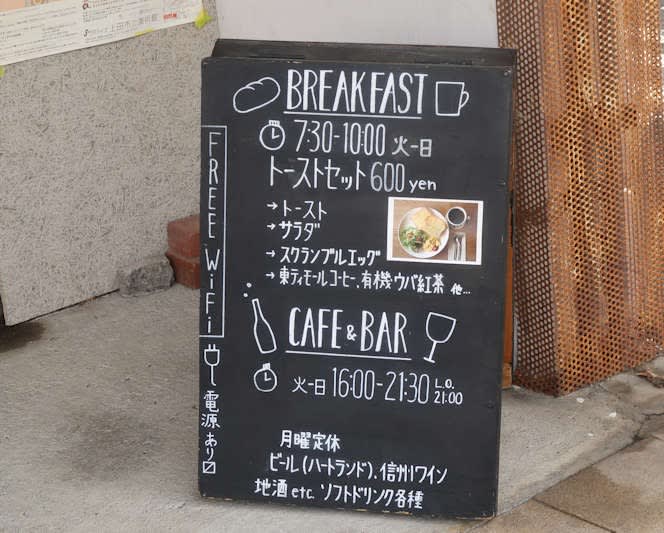 BREAKFAST
7:30-10:00 火-日
トーストセット 600 yen
→トースト
→サラダ
→スクランブルエッグ
→東ティモールコーヒー、有機ウバ紅茶 他...
CAFE & BAR
火-日 16:00-21:30 L.O. 21:00
月曜定休
ビール(ハートランド)、信州ワイン
地酒 etc. ソフトドリンク各種
FREE WiFi
電源あり〼